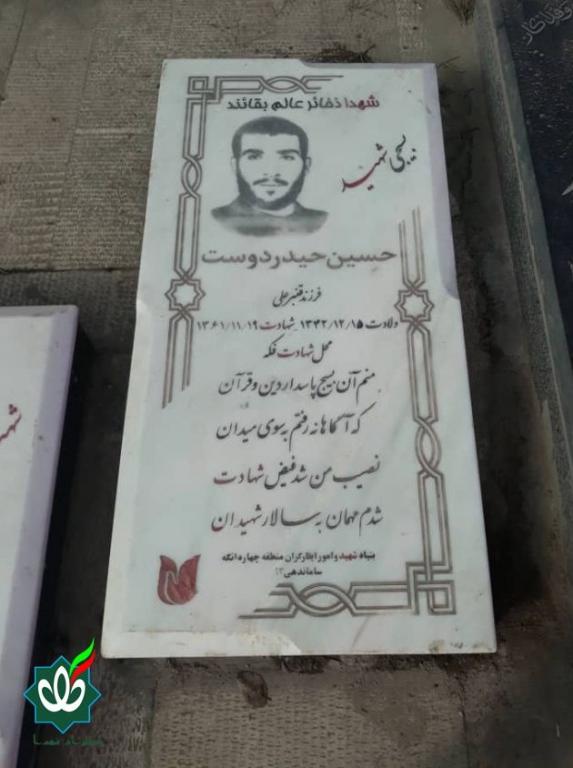 شهدا ذخائر عالم بقائند
بسیجی شهید
حسین حیدردوست
فرزند قنبرعلی
ولادت ۱۳۴۲/۱۲/۱۵ شهادت ۱۳۶۱/۱۱/۱۹
محل شهادت فکه
منم آن بسیج پاسدار دین و قرآن
که آگاهانه رفتم به سوی میدان
نصیب من شد فیض شهادت
شدم مهمان به سالار شهیدان
بنیاد شهید و امور ایثارگران منطقه چهاردانگه
ساماندهی ۹۳
وفداکار